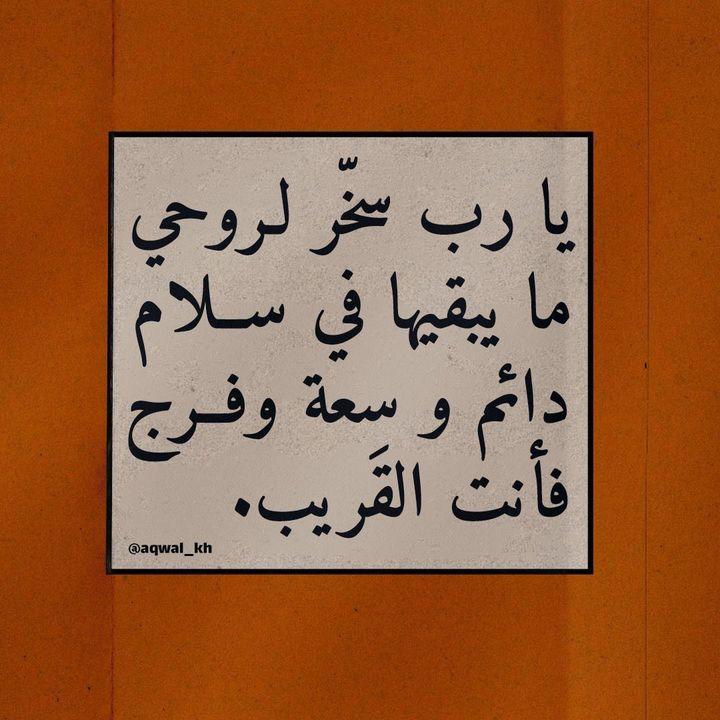 يا رب سخّر لروحي
ما يبقيها في ســلام
دائم و سعة وفـرج
فأنت القَريب.
@aqwal_kh